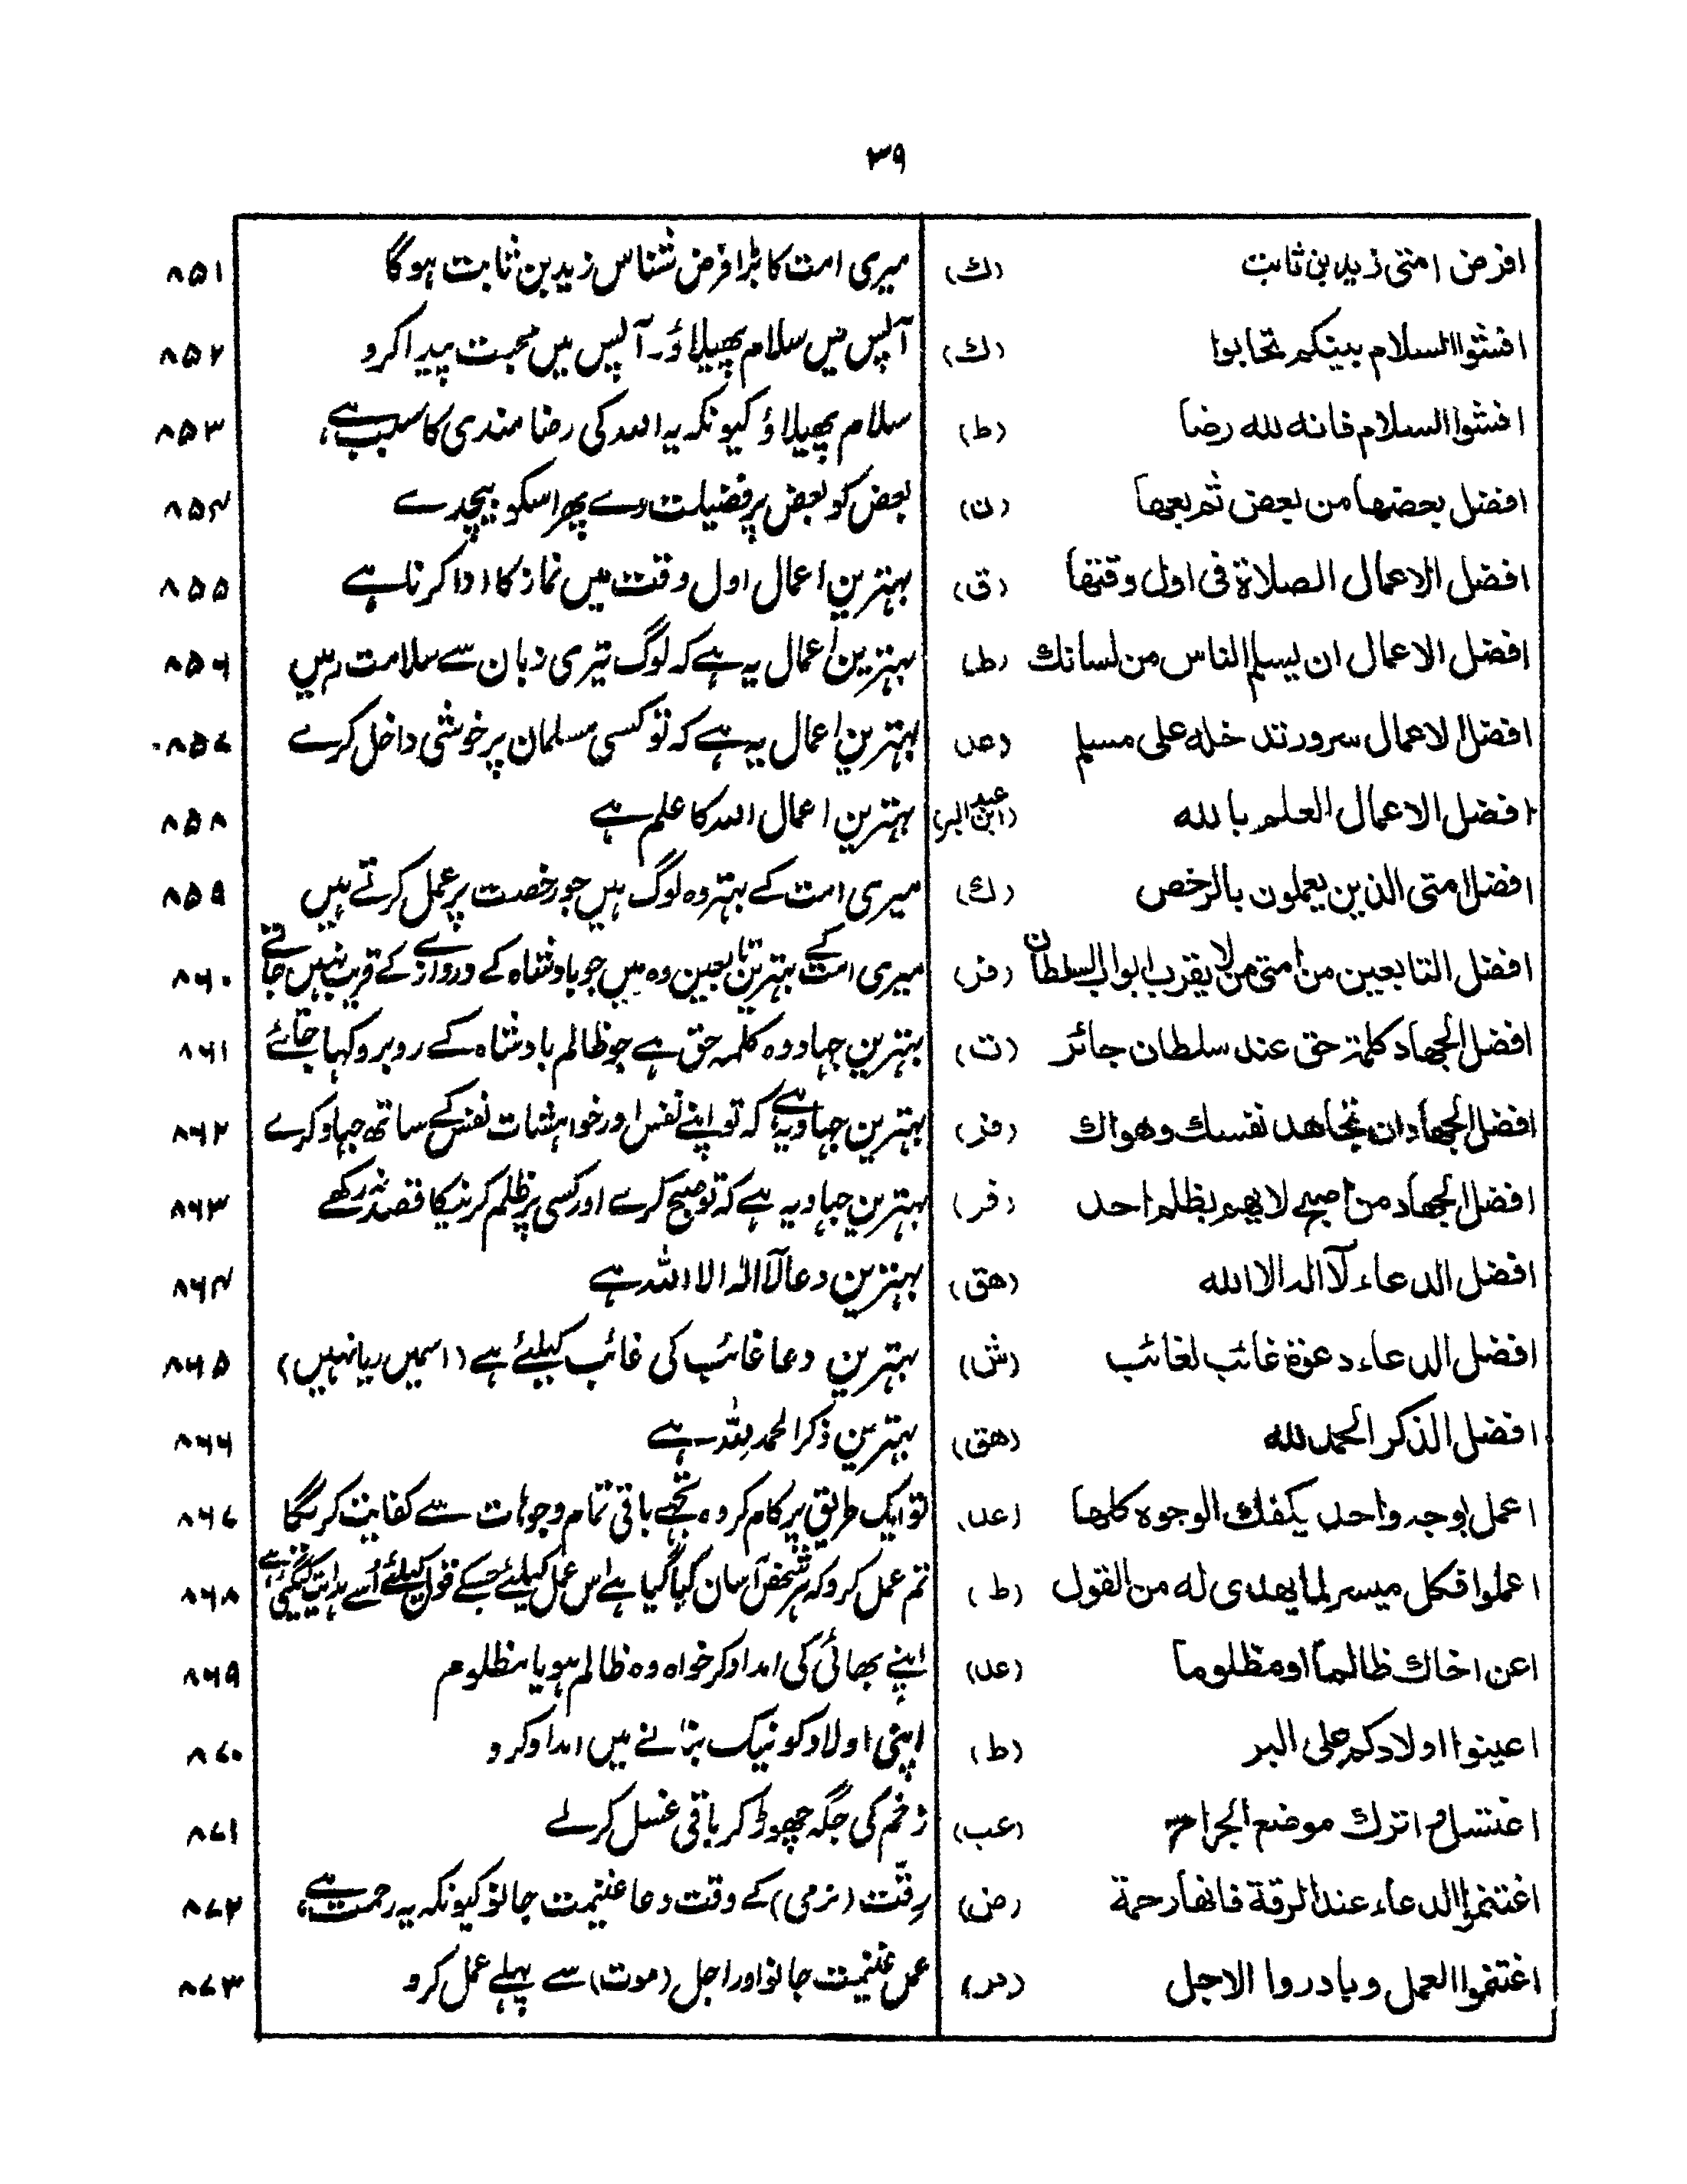 ۳۹
افرض امتی زید بن ثابت (ك) میری امت کا بڑا فرض شناس زید بن ثابت ہوگا ۸۵۱
افشوا السلام بینکم تحابوا (ك) آپس میں سلام پھیلاؤ۔ آپس میں محبت پیدا کرو ۸۵۲
افشوا السلام فانه لله رضا (ط) سلام پھیلاؤ کیونکہ یہ اللہ کی رضا مندی کا سبب ہے، ۸۵۳
افضل بعضها من بعض ثم بعها (ن) بعض کو بعض پر فضیلت دے پھر اسکو بیچدے ۸۵۴
افضل الاعمال الصلاة فی اول وقتها (ق) بہترین اعمال اول وقت میں نماز کا ادا کرنا ہے ۸۵۵
افضل الاعمال ان یسلم الناس من لسانك (ط) بہترین اعمال یہ ہے کہ لوگ تیری زبان سے سلامت رہیں ۸۵۶
افضل الاعمال سرور تدخله علی مسلم (عد) بہترین اعمال یہ ہے کہ تو کسی مسلمان پر خوشی داخل کرے ۸۵۷
افضل الاعمال العلم بالله (ابن عبد البر) بہترین اعمال اللہ کا علم ہے ۸۵۸
افضل امتی الذین یعملون بالرخص (ك) میری امت کے بہتر وہ لوگ ہیں جو رخصت پر عمل کرتے ہیں ۸۵۹
افضل التابعین من امتی من لا یقرب ابواب السلطان (فر) میری امت کے بہترین تابعین وہ ہیں جو بادشاہ کے دروازے کے قریب نہیں جاتے ۸۶۰
افضل الجهاد کلمة حق عند سلطان جائر (ت) بہترین جہاد وہ کلمہ حق ہے جو ظالم بادشاہ کے روبرو کہا جائے ۸۶۱
افضل الجهاد ان تجاهد نفسك وهواك (فر) بہترین جہاد یہ ہے کہ تو اپنے نفس اور خواہشات نفس کے ساتھ جہاد کرے ۸۶۲
افضل الجهاد من اصبح لا یهم بظلم احد (فر) بہترین جہاد یہ ہے کہ تو صبح کرے اور کسی پر ظلم کرنیکا قصد نہ رکھے ۸۶۳
افضل الدعاء لآ اله الا الله (هق) بہترین دعا لآ الٰہ الا اللہ ہے ۸۶۴
افضل الدعاء دعوة غائب لغائب (ش) بہترین دعا غائب کی غائب کیلئے ہے (اسمیں ریا نہیں) ۸۶۵
افضل الذکر الحمد لله (هق) بہترین ذکر الحمد للہ ہے ۸۶۶
اعمل لوجه واحد یکفك الوجوه کلها (عد) تو ایک طریق پر کام کر وہ تجھے باقی تمام وجوہات سے کفایت کریگا ۸۶۷
اعملوا فکل میسر لما یهدی له من القول (ط) تم عمل کرو کہ ہر شخص آسان کیا گیا ہے اس عمل کیلئے جسکے قول کیلئے اُسے ہدایت کیگئی ہے ۸۶۸
اعن اخاك ظالما او مظلوما (عد) اپنے بھائی کی امداد کر خواہ وہ ظالم ہو یا مظلوم ۸۶۹
اعینوا اولادکم علی البر (ط) اپنی اولاد کو نیک بنانے میں امداد کرو ۸۷۰
اغتسل و اترك موضع الجراح (عب) زخم کی جگہ چھوڑ کر باقی غسل کرلے ۸۷۱
اغتنموا الدعاء عند الرقة فانها رحمة (ض) رقّت (نرمی) کے وقت دعا غنیمت جانو کیونکہ یہ رحمت ہے، ۸۷۲
اغتنموا العمل وبادروا الاجل (مر) عمل غنیمت جانو اور اجل (موت) سے پہلے عمل کرو ۸۷۳